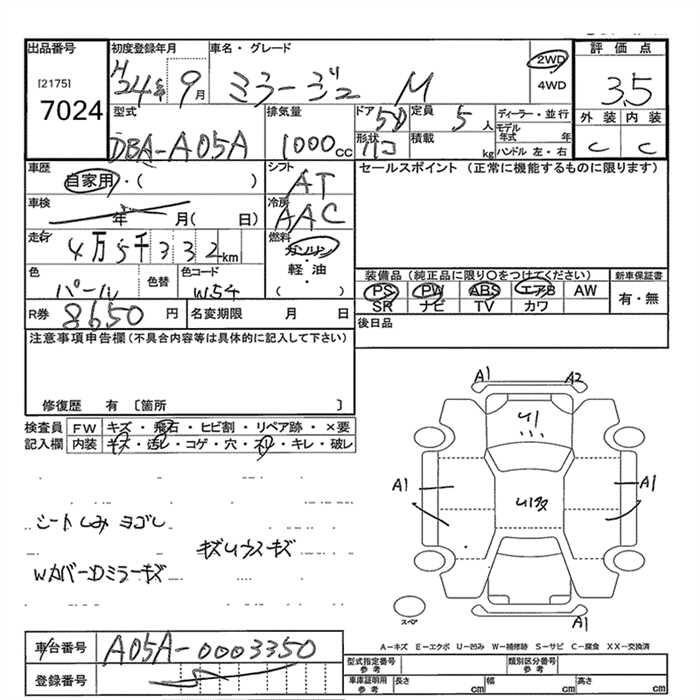 出品番号
[2175]
7024
初度登録年月
H24年 9月
車名・グレード
ミラージュ M
2WD
4WD
評価点
3.5
外装 内装
C C
型式
DBA-A05A
排気量
1000cc
ドア 5D
定員 5人
形状 ハコ
積載 kg
ディーラー・並行
モデル年式 年
ハンドル 左・右
車歴
自家用・( )
シフト
AT
セールスポイント (正常に機能するものに限ります)
車検
年 月( 日)
冷房
AAC
走行
4万5千332km
燃料
ガソリン
軽・油
( )
色
パール
色替
色コード
W54
装備品 (純正品に限り○をつけてください)
PS PW ABS エアB AW
SR ナビ TV カワ
新車保証書
有・無
R券 8650円
名変期限 月 日
後日品
注意事項申告欄 (不具合内容等は具体的に記入して下さい)
修復歴 有 〔箇所 〕
検査員記入欄
FW キズ・飛石・ヒビ割・リペア跡・×要
内装 キズ・汚レ・コゲ・穴・スレ・キレ・破レ
シートしみ ヨゴレ
キズUウスキズ
WカバーDミラーキズ
A1 A2
A1 A1
A1
スペア
A-キズ E-エクボ U-凹み W-補修跡 S-サビ C-腐食 XX-交換済
車台番号
A05A-0003350
登録番号
型式指定番号 参考
類別区分番号 参考
車庫証明用 参考
長さ cm
幅 cm
高さ cm